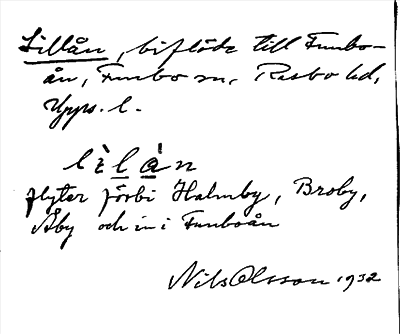 Lillån, biflöde till Funbo-
ån, Funbo sn, Rasbo hd,
Upps. l.
lìlàn
flyter förbi Halmby, Broby,
Åby och in i Funboån
Nils Olsson 1932